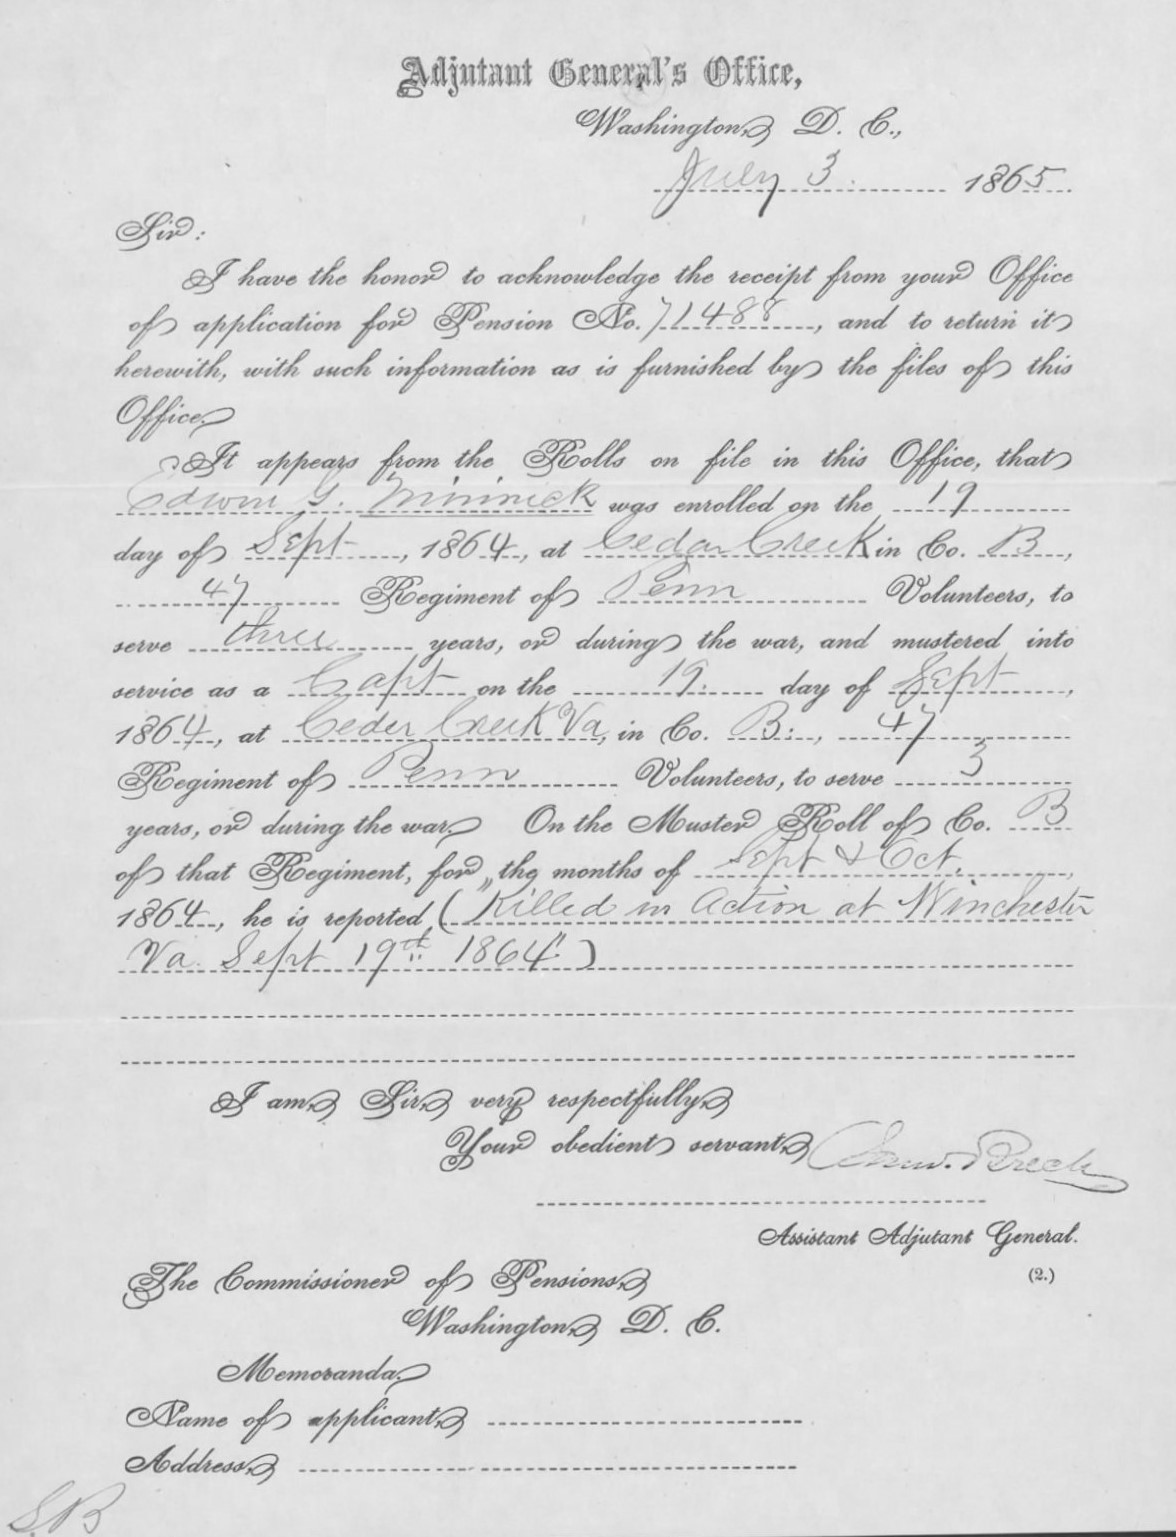 Adjutant General's Office,
Washington, D. C.,
July 3. 1865
Sir:
I have the honor to acknowledge the receipt from your Office
of application for Pension No. 71488, and to return it
herewith, with such information as is furnished by the files of this
Office.
It appears from the Rolls on file in this Office, that
Edwin G. Minnick was enrolled on the 19
day of Sept, 1864, at Cedar Creek in Co. B,
47 Regiment of Penn Volunteers, to
serve three years, or during the war, and mustered into
service as a Capt on the 19. day of Sept,
1864, at Ceder Creek Va, in Co. B:, 47
Regiment of Penn Volunteers, to serve 3
years, or during the war. On the Muster Roll of Co. B
of that Regiment, for the months of Sept & Oct.,
1864, he is reported ("Killed in Action at Winchester
Va. Sept 19th 1864")
I am, Sir, very respectfully,
Your obedient servant,
Assistant Adjutant General.
(2.)
The Commissioner of Pensions,
Washington, D. C.
Memoranda.
Name of applicant,
Address,
S.B